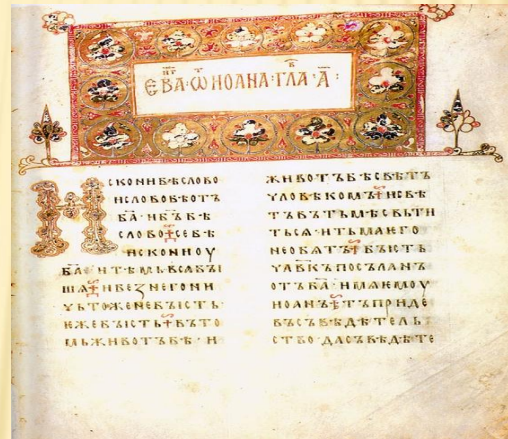 ЄВА·Ѡ͠ИОАНА·ГЛА·А҃:
ИСКОНИБѢСЛОВО
ИСЛОВОБѢОТЪ
БА҃·ИБ҃ЪБѢ
СЛОВО⁘СЕБѢ
ИСКОНИОУ
БА҃·ИТѢМЬВЬСАБꙐ
ШѦ⁘ИБЕЗНЕГОНИ
ЧЬТОЖЕНЕБꙐСТЬ·
ѤЖЕБꙐСТЬ⁘ВЪТО
МЬЖИВОТЪБѢ·И
ЖИВОТЪБѢСВѢТЪ
ЧЛОВѢКОМЪ⁘ИСВѢ
ТЪВЪТЬМѢСВЬТИ
ТЬСѦ·ИТЬМАѤГО
НЕОБѦТЪ⁘БꙐСТЬ
ЧЛВ҃КЪПОСЪЛАНЪ
ОТЪБА҃·ИМѦѤМОУ
ИОАНЪ⁘ТЪПРИДЕ
ВЪСЪВѢДѢТЕЛЬ
СТВО·ДАСЪВѢДѢТЕ